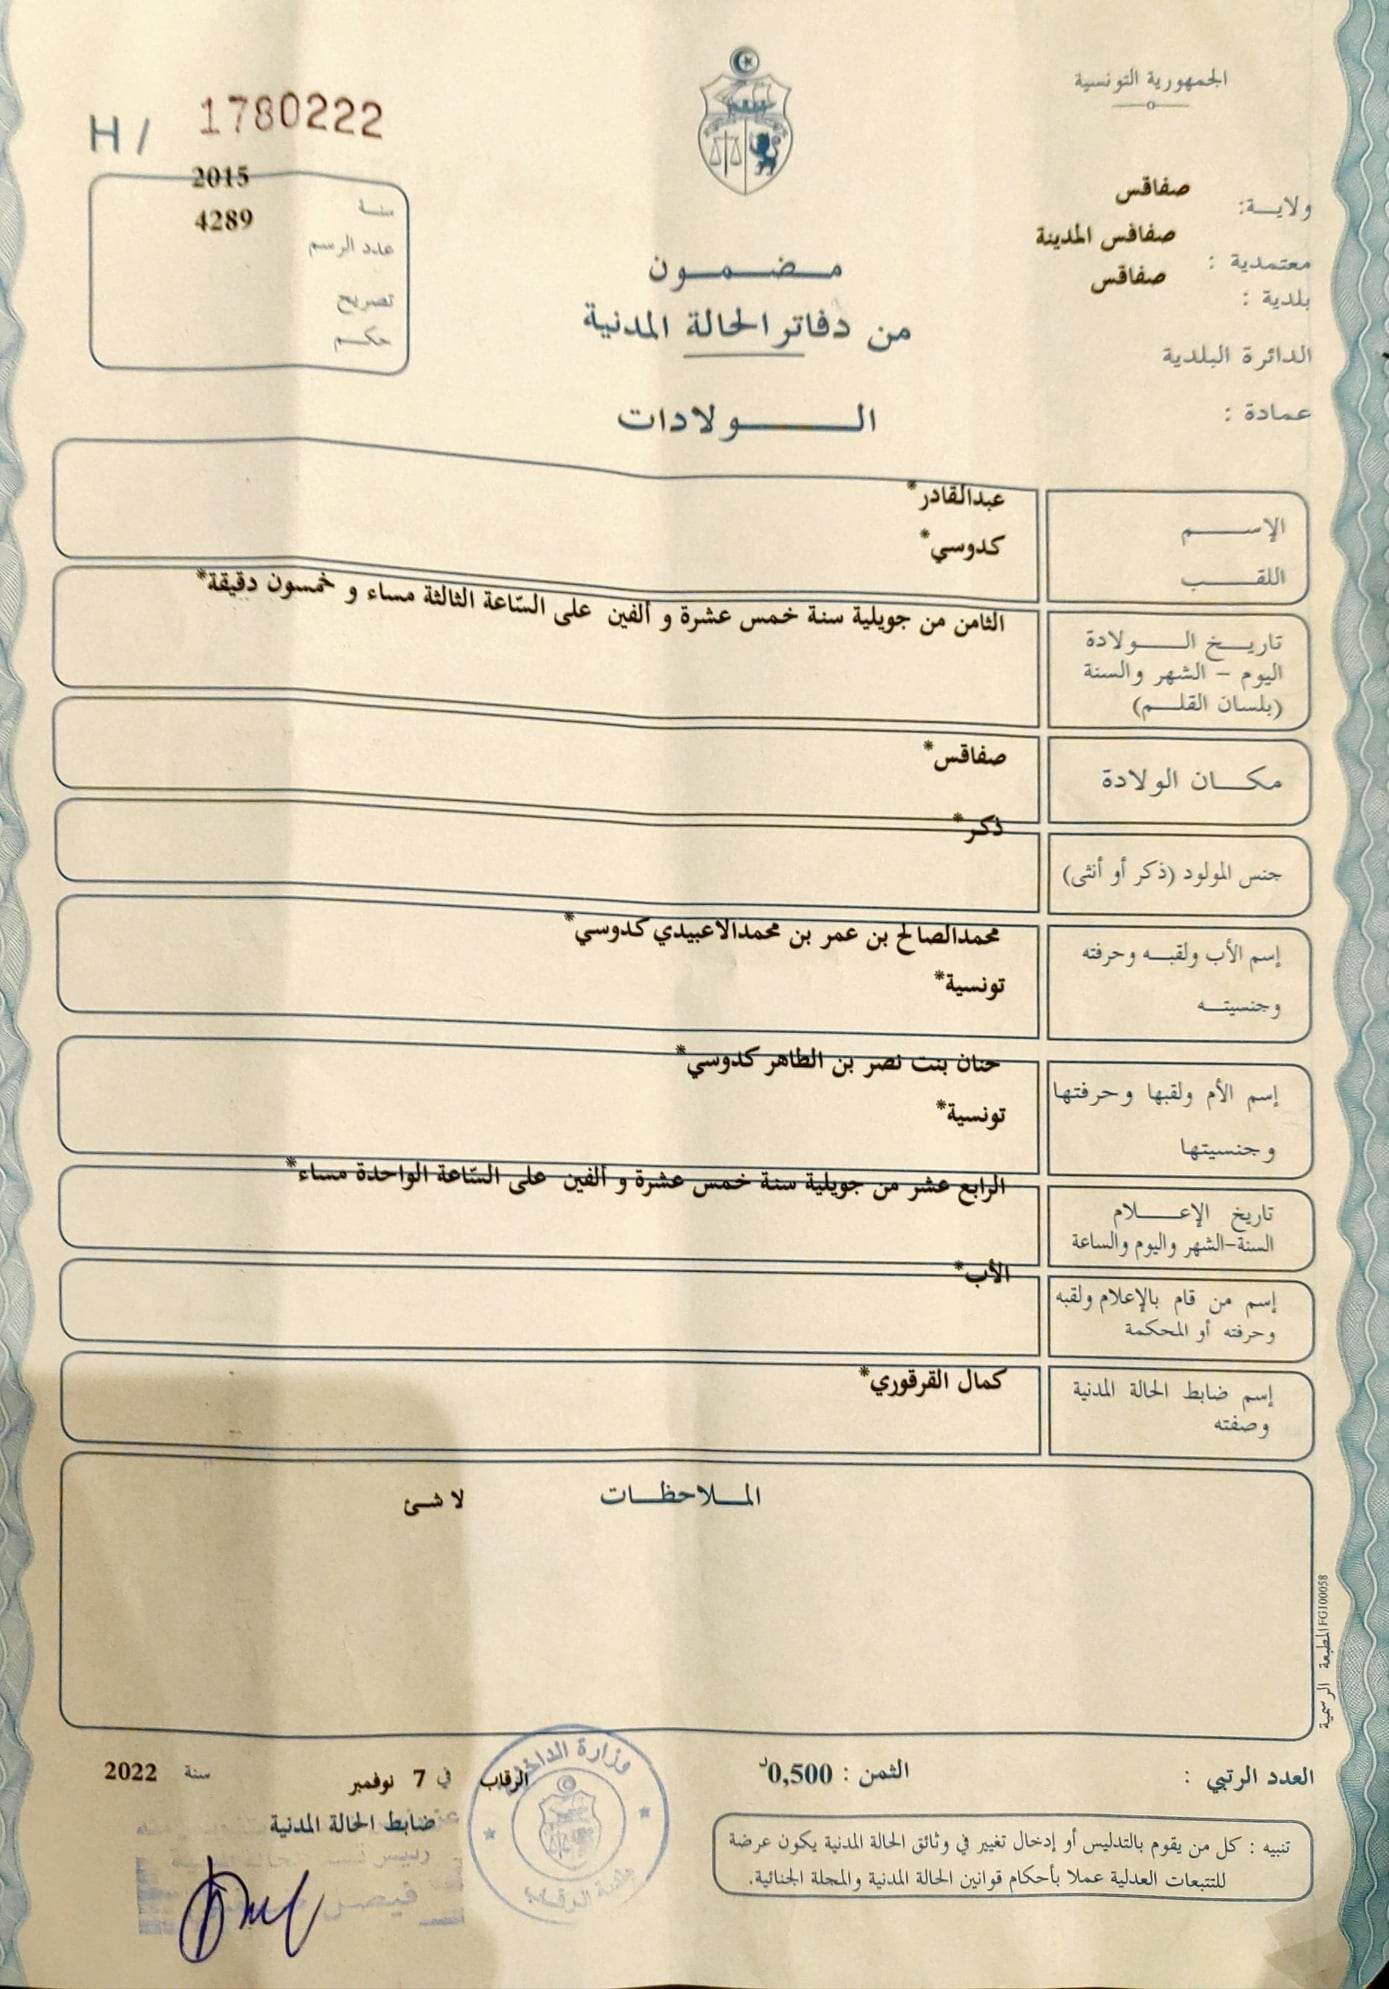 الجمهورية التونسية
H / 1780222
ولاية: صفاقس
معتمدية : صفاقس المدينة
بلدية : صفاقس
الدائرة البلدية
عمادة :
سنة 2015
عدد الرسم 4289
تصريح
حكم
مضمون
من دفاتر الحالة المدنية
الولادات
الإسم عبدالقادر*
اللقب كدوسي*
تاريخ الولادة
اليوم - الشهر والسنة
(بلسان القلم)
الثامن من جويلية سنة خمس عشرة و ألفين على السّاعة الثالثة مساء و خمسون دقيقة*
مكان الولادة صفاقس*
جنس المولود (ذكر أو أنثى) ذكر*
إسم الأب ولقبه وحرفته
وجنسيته
محمدالصالح بن عمر بن محمدالاعبيدي كدوسي*
تونسية*
إسم الأم ولقبها وحرفتها
وجنسيتها
حنان بنت نصر بن الطاهر كدوسي*
تونسية*
تاريخ الإعلام
السنة-الشهر واليوم والساعة
الرابع عشر من جويلية سنة خمس عشرة و ألفين على السّاعة الواحدة مساء*
إسم من قام بالإعلام ولقبه
وحرفته أو المحكمة
الأب*
إسم ضابط الحالة المدنية
وصفته
كمال القرقوري*
الملاحظات لا شئ
المطبعة الرسمية FG100058
العدد الرتبي :
الثمن : 0,500د
الرقاب في 7 نوفمبر سنة 2022
ضابط الحالة المدنية
تنبيه : كل من يقوم بالتدليس أو إدخال تغيير في وثائق الحالة المدنية يكون عرضة
للتتبعات العدلية عملا بأحكام قوانين الحالة المدنية والمجلة الجنائية.
وزارة الداخلية
بلدية الرقاب
فيصل